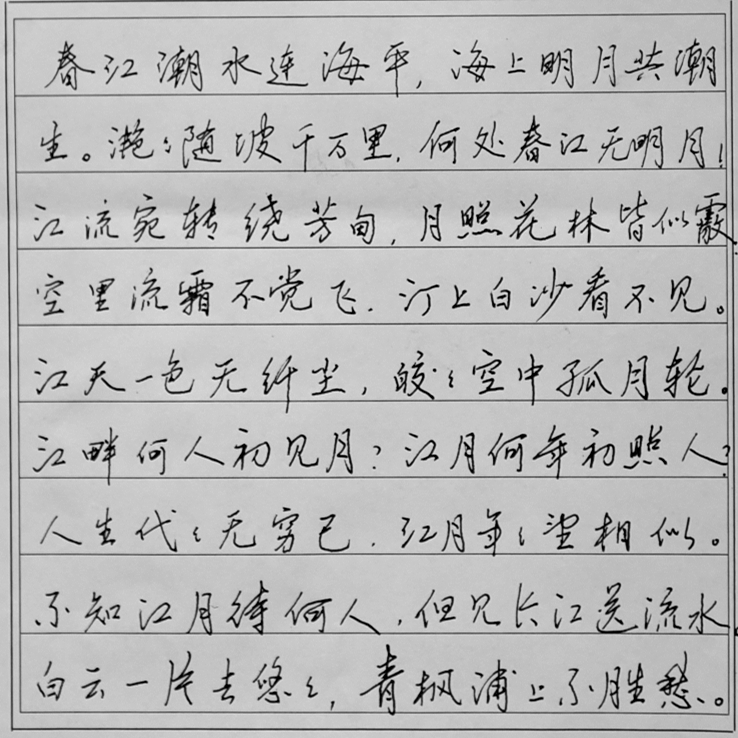 春江潮水连海平，海上明月共潮
生。滟々随波千万里，何处春江无明月！
江流宛转绕芳甸，月照花林皆似霰
空里流霜不觉飞，汀上白沙看不见。
江天一色无纤尘，皎々空中孤月轮。
江畔何人初见月？江月何年初照人？
人生代々无穷已，江月年々望相似。
不知江月待何人，但见长江送流水。
白云一片去悠々，青枫浦上不胜愁。